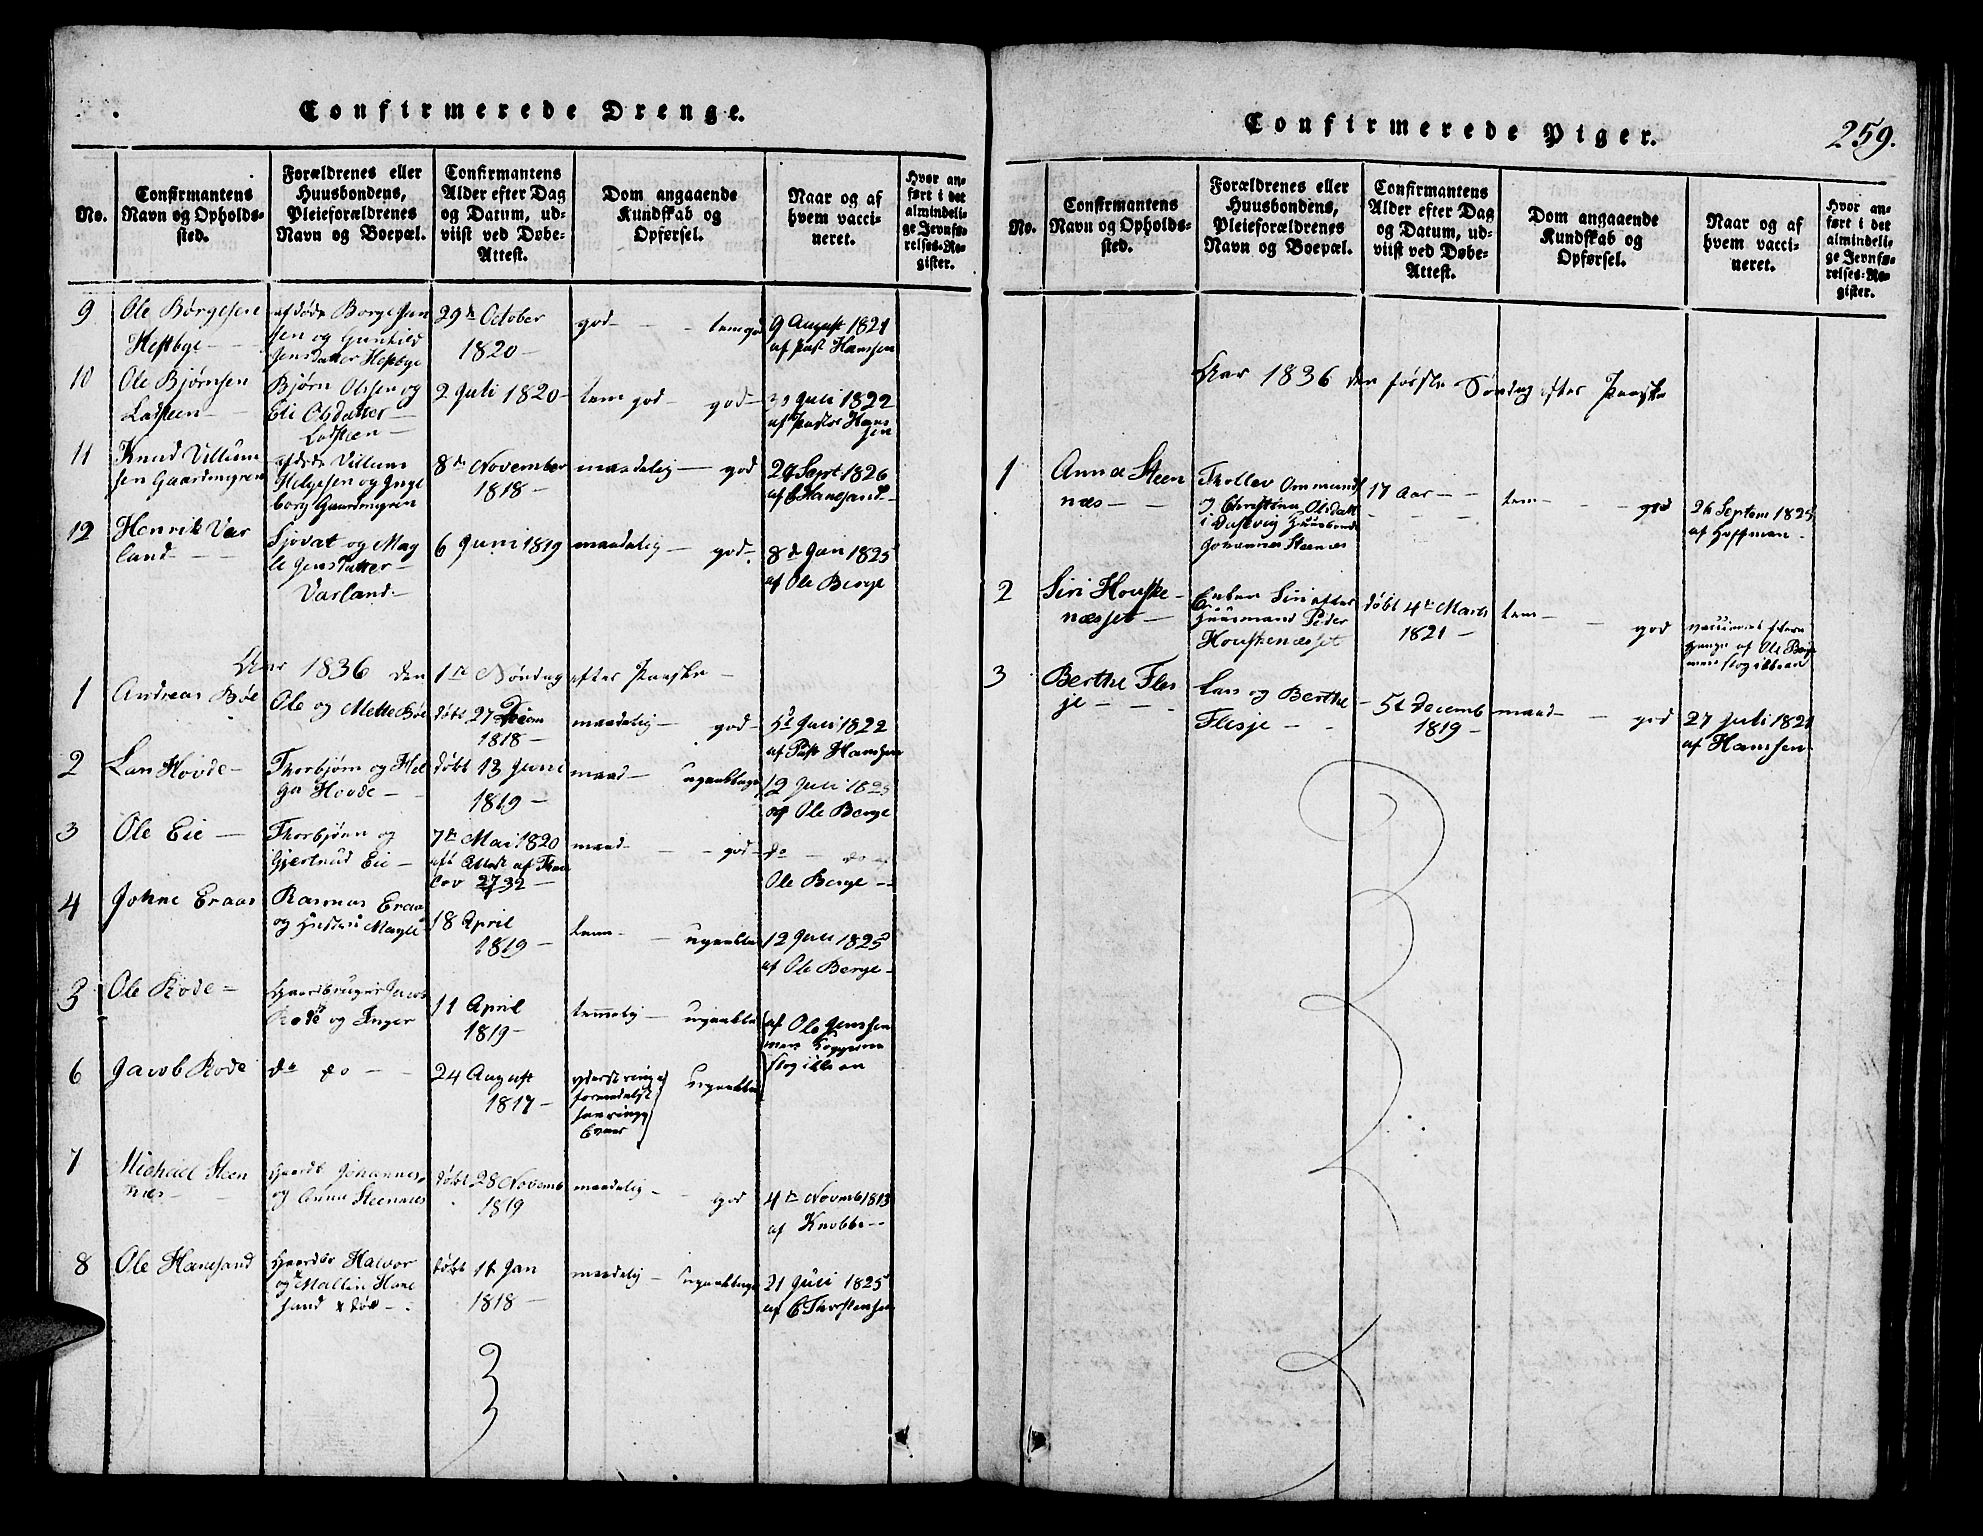 Confirmerede Drenge.
No.
Confirmantens
Navn og Opholds-
sted.
Forældrenes eller
Huusbondens,
Pleieforældrenes
Navn og Boepæl.
Confirmantens
Alder efter Dag
og Datum, ud-
viist ved Døbe-
Attest.
Dom angaaende
Kundskab og
Opførsel.
Naar og af
hvem vacci-
neret.
Hvor an-
ført i det
almindeli-
ge Jevnfø-
relses-Re-
gister.
9
Ole Børgesen
Hestbye -
afdøde Borge
sen og Gunhild
Jensdatter Hestbye
29de October
1820 -
god - - temgod
9 August 1821
af Past Hanssen
10
Ole Bjørnsen
Ladsteen -
Bjørn Olssen og
Eli Olsdatter -
Ladsteen -
2 Juli 1820 -
tem god - god -
Juli 1822
af Pastor Hans
sen
11
Knud Villum
sen Gaardmgren
afdøde Villum
Helgesen og Inge
borg Gaardmgren
8de November
1818 -
maadelig - god
Sept 1826
af C Hanesand -
12
Henrik Var
land - -
Sjovat og Mag
le Jensdatter -
Varland -
6 Juni 1819
maadelig - god -
8d Jan 1825
af Ole Berge
Aar 1836 den 1ste Søndag efter Paaske -
1
Andreas Bøe
Ole og Mette Bøe
døbt 27
1818 -
maadelig - god -
Juli 1822
af Past Hanssen
2
Lars Hovde -
Thorbjørn og Hel
ga Hovde -
døbt 13 Juni
1819 -
maad - upaaklage
12 Juli 1825
af Ole Berge
3
Ole Eie -
Thorbjørn og
Gjertrud Eie -
7de Mai 1820
Attest af
maad - - god -
do - do af
Ole Berge -
4
Johne Eraas
Rasmus Eraas
og Hustru Magle
18 April
1819 -
tem - - upaaklag
12 Juli 1825
af Ole Berge -
Ole Rode -
Gaardbruger Jacob
Rode og Inger
11 April
1819 -
temmelig - upaaklag
af Ole Jenssen
men Kopperne
slog ikke an
6
Jacob Rode
do do - -
24 August
1817 -
yderst ringe
formedelst
upaaklag
7
Michael Steen
næs -
Gaardb Johannes
og Anna Steennæs
døbt 28 Novemb
1819
maadelig - - God
4de Novemb
af Knobbe -
8
Ole Hanesand
Gaardbr Halvor
og Mallin Hane
sand
døbt Jan
1818 -
maadelig - upaaklage
21 Juli 1825
af C Thorstensen
Confirmerede Piger.
259.
No.
Confirmantens
Navn og Opholds-
sted.
Forældrenes eller
Huusbondens,
Pleieforældrenes
Navn og Boepæl.
Confirmantens
Alder efter Dag
og Datum, ud-
viist ved Døbe-
Attest.
Dom angaaende
Kundskab og
Opførsel.
Naar og af
hvem vacci-
neret.
Hvor an-
ført i det
almindeli-
ge Jevnfø-
relses-Re-
gister.
Aar 1836 den første Søndag efter Paaske
1
Anna Steen
næs -
Thollev Ommunds
og Christina Olsdatt
i Huusbonde
Johannes Steennæs
17 Aar - -
tem - - god
26 Septem 1825
af Hoffman -
2
Siri Houske -
næsset -
Enken Siri efter
Huusmand Peder
Houskenæsset
døbt 4de Marts
1821 -
tem - - god
vaccineret flere
Gange af Ole Berge
men slog ikke an
3
Berthe Fles
je - -
Lars og Berthe -
Flesje - -
5t Decemb
1819 -
maad - - god
27 Juli 1821
af Hanssen -